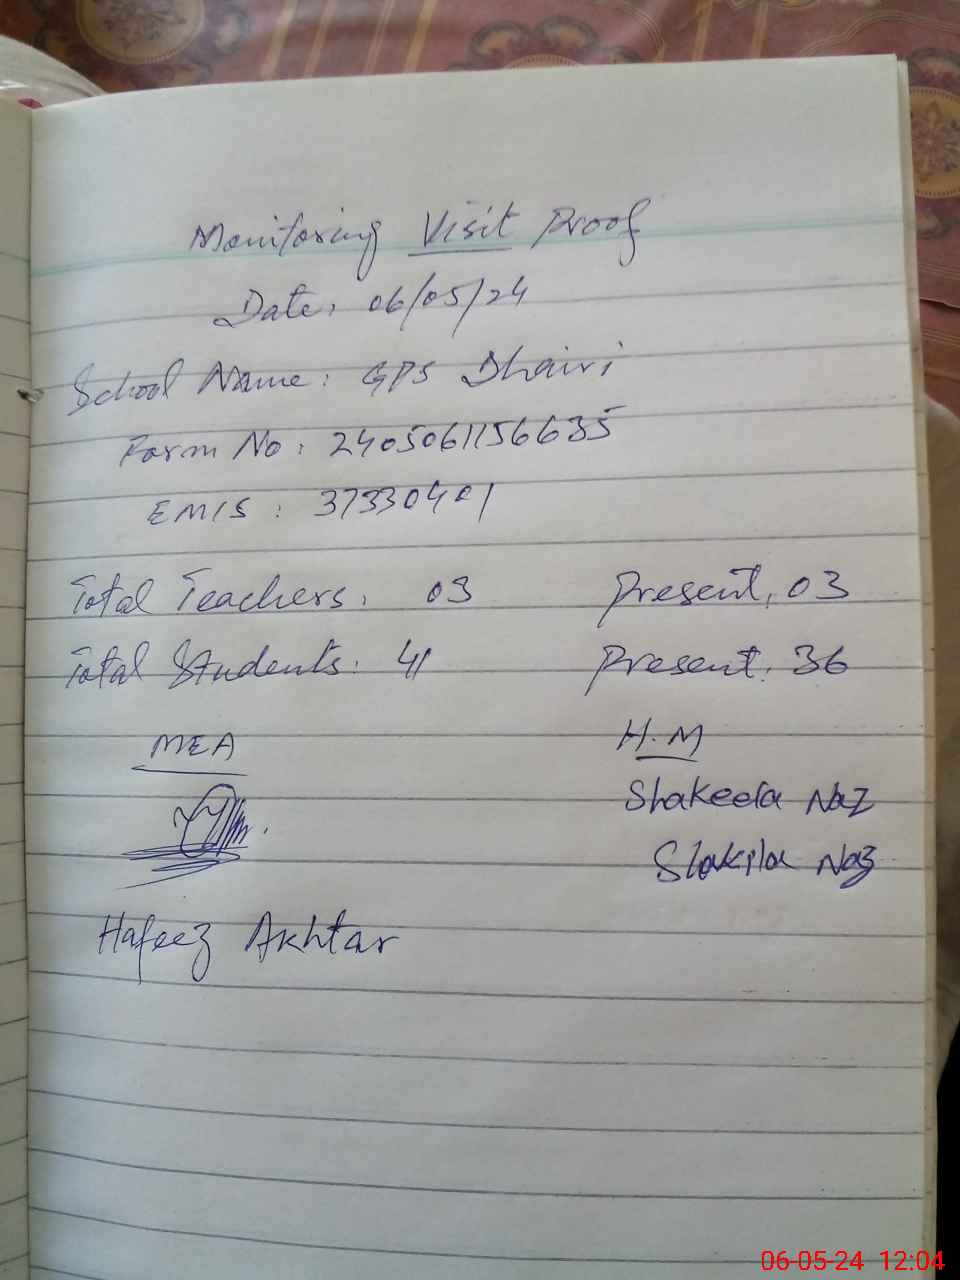 Monitoring Visit Proof
Date: 06/05/24
School Name: GPS Dhairi
Form No: 2405061156635
EMIS: 37330401
Total Teachers: 03 Present: 03
Total Students: 41 Present: 36
MEA H.M
Shakeela Naz
Shakila Naz
Hafeez Akhtar
06-05-24 12:04